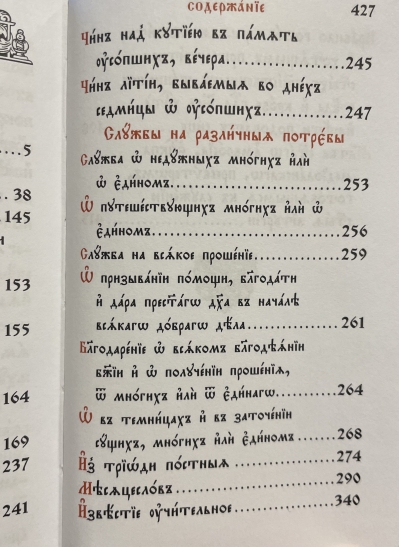 СОДЕРЖА́НЇЕ 427
5
38
145
и
153
155
164
169
237
241
Чи́нъ над̾ кꙋтїе́ю въ па́мѧть
ᲂу҆со́пшихъ, ве́чера 245
Чи́нъ лїті́и, быва́емыѧ во дне́хъ
седми́цы ѡ҆ ᲂу҆со́пшихъ 247
Слꙋ̑жбы на разли̑чныѧ потре̑бы
Слꙋ́жба ѡ҆ недꙋ́жныхъ мно́гихъ и҆лѝ
ѡ҆ є҆ди́номъ 253
Ѡ҆ пꙋтеше́ствꙋющихъ мно́гихъ и҆лѝ ѡ҆
є҆ди́номъ 256
Слꙋ́жба на всѧ́кое проше́нїе 259
Ѡ҆ призыва́нїи по́мощи, блгⷣа́ти
и҆ да́ра прест҃а́гѡ дх҃а въ нача́лѣ
всѧ́кагѡ до́брагѡ дѣ́ла 261
Бл҃годаре́нїе ѡ҆ всѧ́комъ бл҃годѣѧ́нїи
бж҃їи и҆ ѡ҆ полꙋче́нїи проше́нїѧ,
ѿ мно́гихъ и҆лѝ ѿ є҆ди́нагѡ 264
Ѡ҆ въ темни́цахъ и҆ въ заточе́нїи
сꙋ́щихъ, мно́гихъ и҆лѝ є҆ди́номъ 268
И҆з̾ трїѡ́ди по́стныѧ 274
Мѣсѧцесло́въ 290
И҆звѣ́стїе ᲂу҆чи́тельное 340